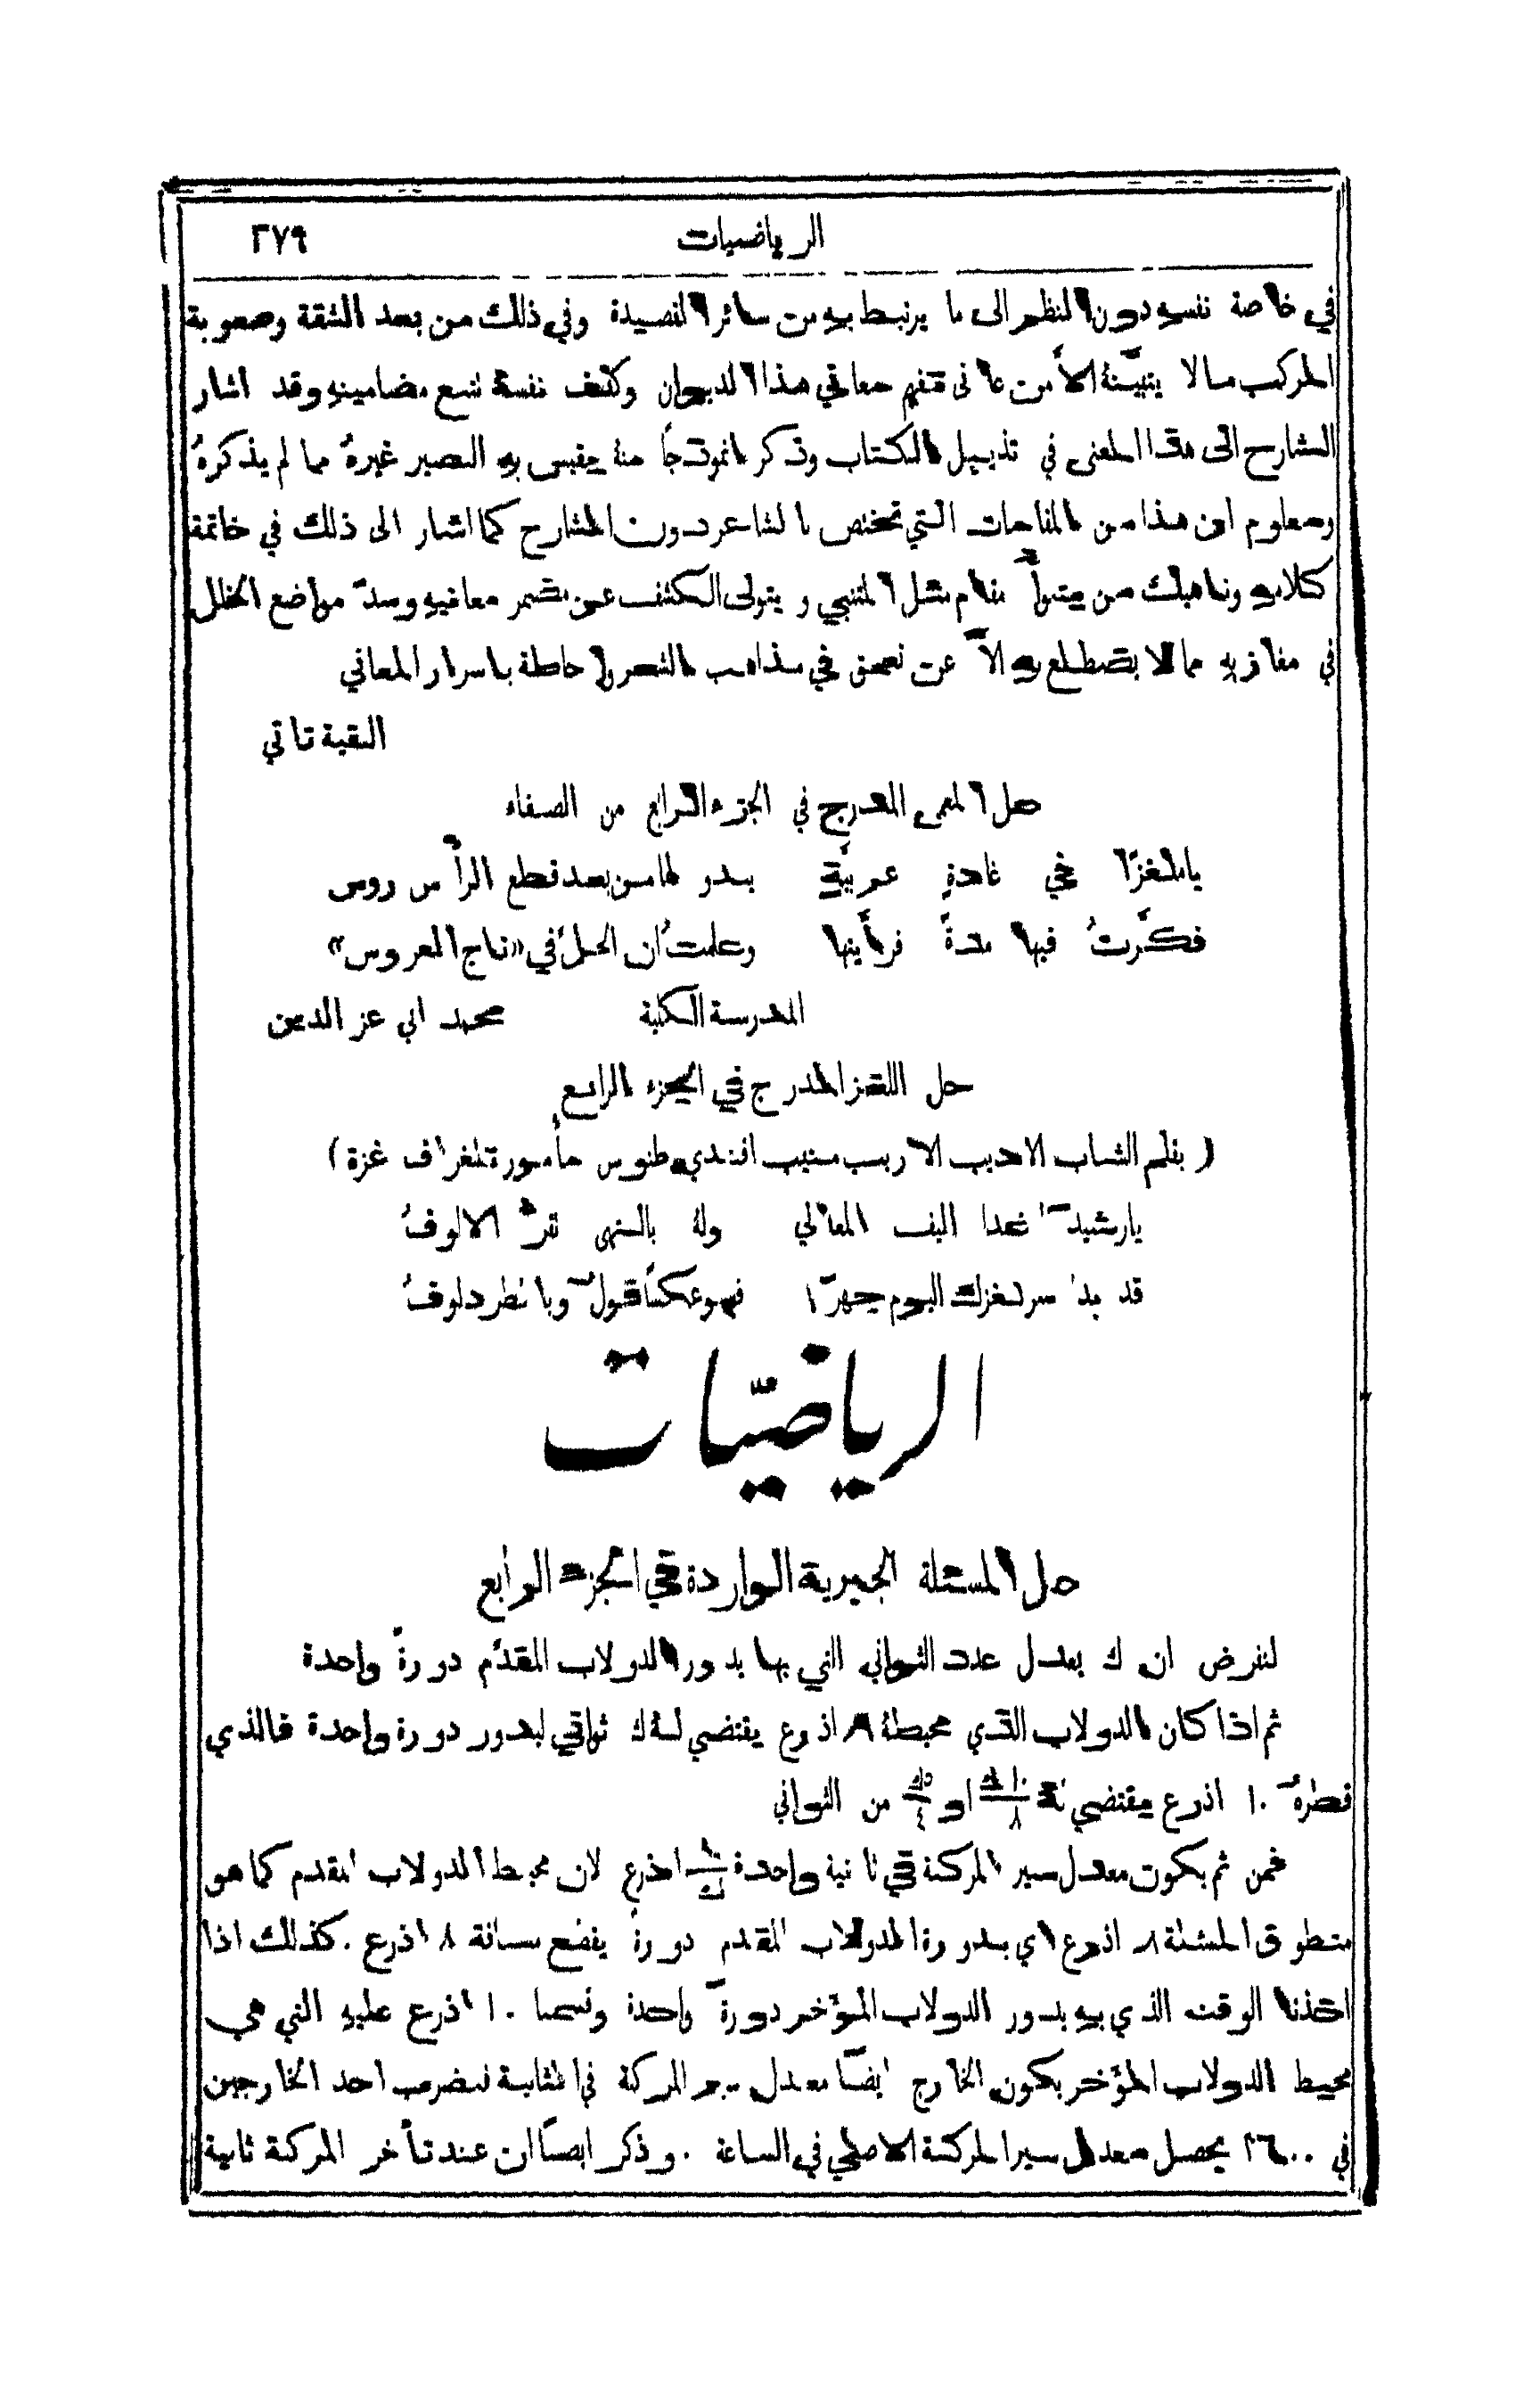 الرياضيات ٢٧٩
في خاصة نفسهِ دون النظر الى ما يرتبط بهِ من سائر القصيدة وفي ذلك من بعد الشقة وصعوبة
المركب ما لا يتبيَّنهُ الاَّ من عانى تفهم معاني هذا الديوان وكلف نفسهُ تتبع مضامينهِ وقد اشار
الشارح الى هذا المعنى في تذييل الكتاب وذكر انموذجًا منهُ يقيس بهِ البصير غيرهُ مما لم يذكرهُ
ومعلوم ان هذا من المباحث التي تختص بالشاعر دون الشارح كما اشار الى ذلك في خاتمة
كلامهِ وناهيك من يتبوأ مقام مثل المتنبي ويتولى الكشف عن مضمر معانيهِ وسدّ مواضع الخلل
في مبانيهِ مما لا يضطلع بهِ الاَّ عن تعمق في مذاهب الشعر واحاطة باسرار المعاني
البقية تاتي
حل المعمى المدرج في الجزء الرابع من الصفاء
يا ملغزًا في غادةٍ عربيَّةٍ يبدو لها من بعد قطع الرأس روس
فكَّرتُ فيها مدةً فرأيتها وعلمتُ ان الحلَّ في «تاج العروس»
المدرسة الكلية محمد ابي عز الدين
حل اللغز المدرج في الجزء الرابع
( بقلم الشاب الاديب الاريب منيب افندي طنوس مأمور تلغراف غزة )
يا رشيدًا غدا اليف المعالي ولهُ بالنهى تقرُّ الالوفُ
قد بدا سر لغزك اليوم جهرًا فهو عكسًا قولٌ وبالطرد لوفُ
الرياضيّات
حل المسئلة الجبرية الواردة في الجزء الرابع
لنفرض ان ك يعدل عدد الثواني التي بها يدور الدولاب المقدَّم دورةً واحدة
ثم اذا كان الدولاب الذي محيطهُ ٨ اذرع يقتضي لهُ ك ثواني ليدور دورة واحدة فالذي
قطرهُ ١٠ اذرع يقتضي لهُ ١٠ك/٨ او ٥ك/٤ من الثواني
فمن ثم يكون معدل سير المركبة في ثانية واحدة ٨/ك اذرع لان محيط الدولاب المقدم كما هو
منطوق المسئلة ٨ اذرع اي بدورة الدولاب المقدم دورةً يقطع مسافة ٨ اذرع . كذلك اذا
اخذنا الوقت الذي بهِ يدور الدولاب المؤخر دورةً واحدة وقسمنا ١٠ اذرع عليهِ التي هي
محيط الدولاب المؤخر يكون الخارج ايضًا معدل سير المركبة في الثانية لنضرب احد الخارجين
في ٣٦٠٠ يحصل معدل سير المركبة الاصلي في الساعة . وذكر ايضًا ان عند تأخر المركبة ثانية